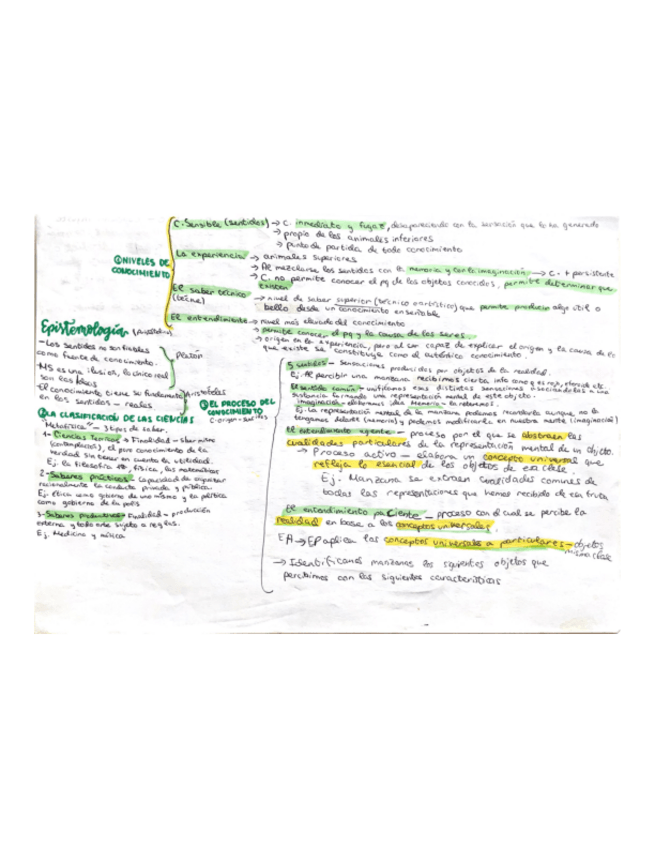 C. Sensible (sentidos) → C. inmediato y fugaz, desapareciendo con la sensación que lo ha generado
→ propio de los animales inferiores
→ punto de partida de todo conocimiento
①NIVELES DE CONOCIMIENTO
La experiencia → animales superiores
→ Al mezclarse los sentidos con la memoria y con la imaginación → C. + persistente
→ C. no permite conocer el pq de los objetos conocidos, permite determinar que existen
El saber técnico (técne) → nivel de saber superior (técnico o artístico) que permite producir algo útil o
bello desde un conocimiento enseñable
El entendimiento → nivel más elevado del conocimiento
→ permite conocer el pq y la causa de los seres.
→ origen en la experiencia, pero al ser capaz de explicar el origen y la causa de lo
que existe se constituye como el auténtico conocimiento.
Epistemología (Aristóteles)
- Los sentidos no son fiables
como fuente de conocimiento.
- MS es una ilusión, lo único real
son las ideas
Platón
El conocimiento tiene su fundamento
en los sentidos - reales
Aristóteles
②EL PROCESO DEL CONOCIMIENTO
C. origen - sentidos
②LA CLASIFICACIÓN DE LAS CIENCIAS
"Metafísica" - 3 tipos de saber.
1- Ciencias Teóricas → Finalidad - saber mismo
(contemplación), el puro conocimiento de la
verdad sin tener en cuenta la utilidad.
Ej: la filosofía, física, las matemáticas
2- Saberes prácticos - capacidad de orientar
racionalmente la conducta privada y pública.
Ej: ética como gobierno de uno mismo y la política
como gobierno de la polis
3- Saberes productivos → Finalidad - producción
externa y todo ello sujeto a reglas.
Ej. Medicina y música
5 sentidos - sensaciones producidas por objetos de la realidad.
Ej. Al percibir una manzana recibimos cierta info como es roja, etc.
El sentido común - unificamos esas distintas sensaciones asociándolas a una
sustancia formando una representación mental de este objeto.
Imaginación - elaboramos ideas Memoria - la retenemos.
Ej. La representación mental de la manzana podemos recordarla aunque no la
tengamos delante (memoria) y podemos modificarla en nuestra mente (imaginación)
El entendimiento agente - proceso por el que se abstraen las
cualidades particulares de la representación mental de un objeto.
→ Proceso activo - elabora un concepto universal que
refleja lo esencial de los objetos de esa clase.
Ej. Manzana se extraen cualidades comunes de
todas las representaciones que hemos recibido de esa fruta
El entendimiento paciente - proceso con el cual se percibe la
realidad en base a los conceptos universales.
EA → EP aplica los conceptos universales a particulares - objetos
misma clase
→ Identificamos manzanas los siguientes objetos que
percibimos con las siguientes características